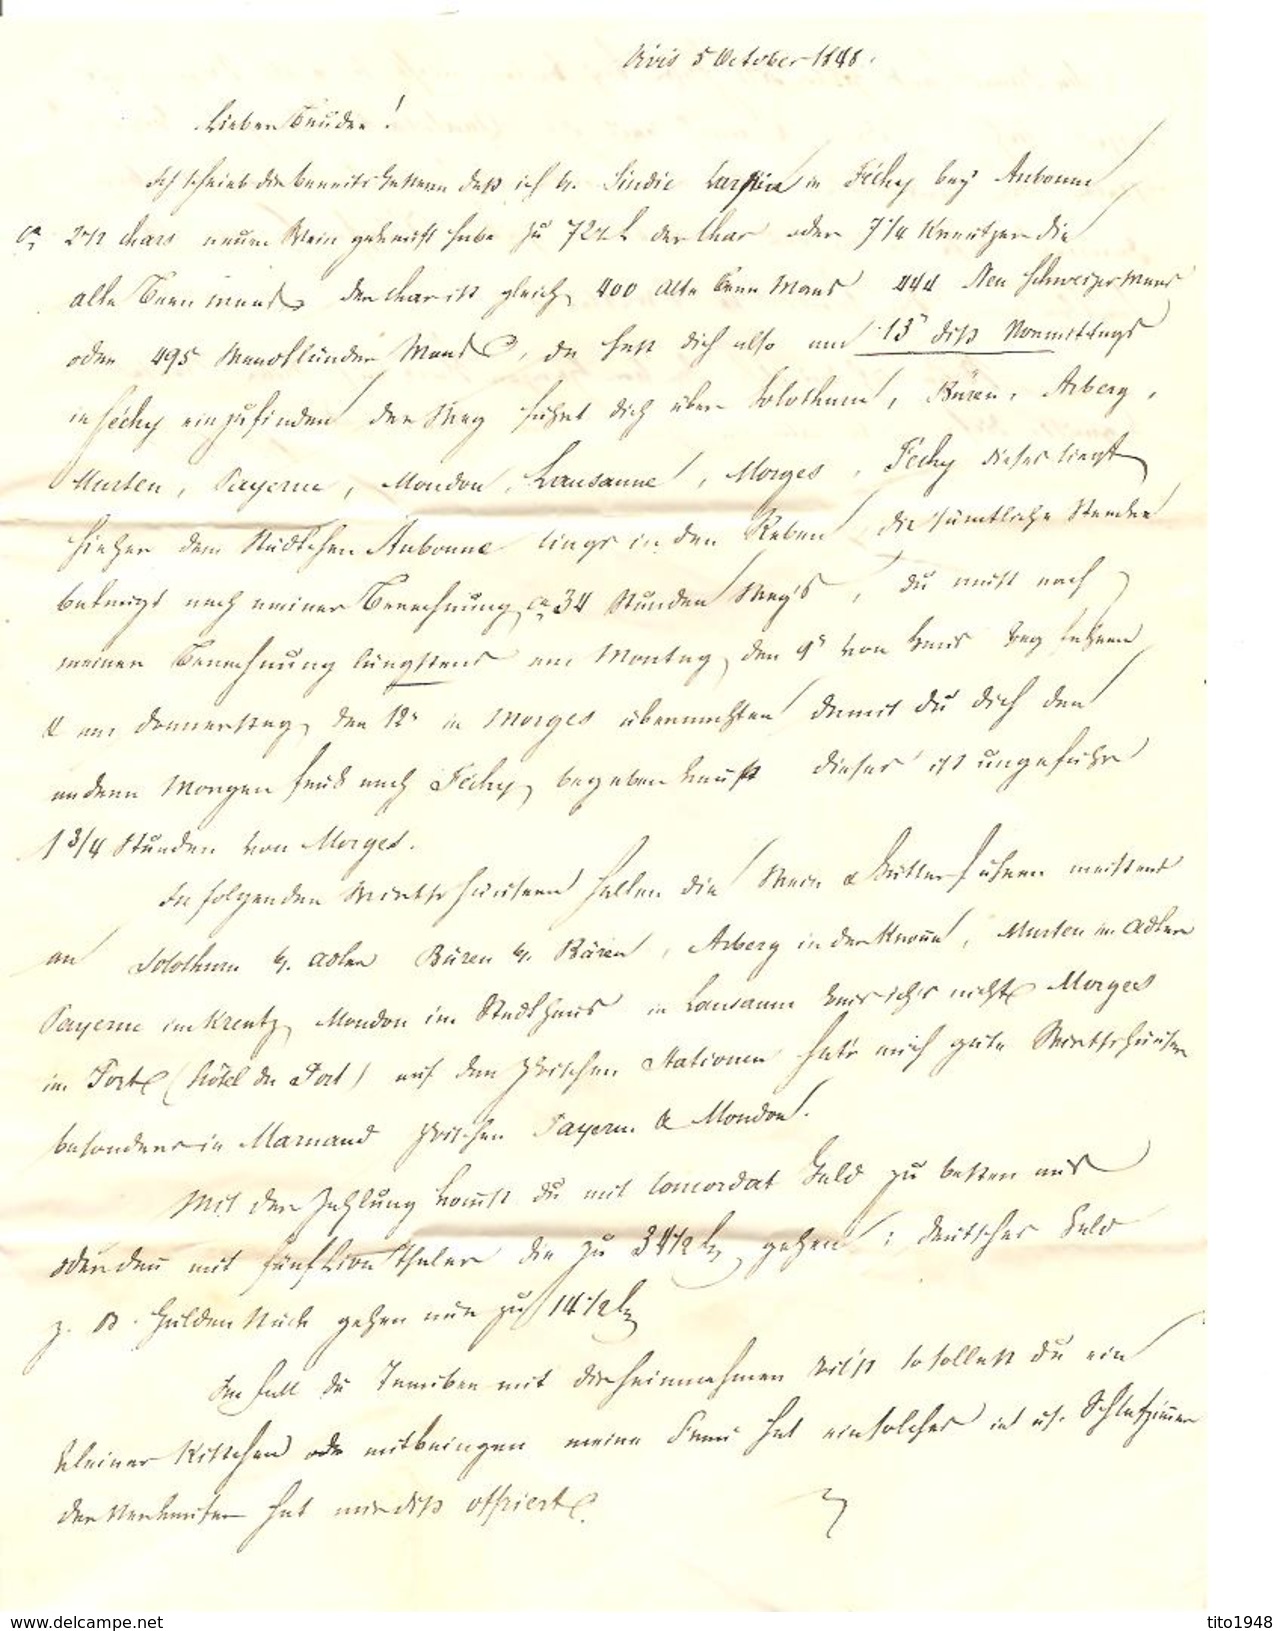 Vivis 5 October 1848.
Lieber Bruder!
Ich schrieb dir bereits gestern daß ich b. Sindic in Féchy bey Aubonne
ca 2 chars neuen Wein gekauft habe zu 72 der Char oder 7 1/4 Kreutzer die
alte Bern maas der char ist gleich 400 alte Bern Maas 444 Neu schweizer Maas
oder 495 Maas, du hast dich also am 13n diß Vormittags
in Féchy einzufinden der Weg führt dich über Solothurn, Büren, Arberg,
Murten, Payerne, Moudon, Lausanne, Morges, Féchy dieses liegt
hieher dem Städtchen Aubonne lings in den Reben, die sämtliche Strecke
beträgt nach meiner Berechnung ca 34 Stunden Weg's, du must nach
meiner Berechnung längstens am Montag den 9n von Haus weg fahren
& am Donnerstag den 12n in Morges übernachten damit du dich den
andern Morgen früh nach Féchy begeben kanst dieses ist ungefähr
1 3/4 Stunden von Morges.
In folgenden Wirtshäusern halten die Wein & meistens
an Solothurn b. Adler Büren b. Bären, Arberg in der Krone, Murten im Adler
Payerne im Kreutz, Moudon im Stadthaus in Lausanne weis ich's nicht Morges
im Port (hôtel du Port) auf den zwischen Stationen hat's auch gute Wirtshäuser
besonders in Marnand zwischen Payerne & Moudon.
Mit der Zahlung komst du mit Concordat Geld zu besten aus
oder dan mit fünf Thaler die zu 34 1/2 bz gehen; deutsches Geld
z. B. Gulden Stück gehen nur zu 14 1/2 bz
Im Fall du Trauben mit dir heimnehmen wilst so soltest du ein
kleines Kistchen oder mitbringen meine Frau hat ein solches in us. Schlafzimmer
der Verkäufer hat mir diß offriert.
tito1948
www.delcampe.net